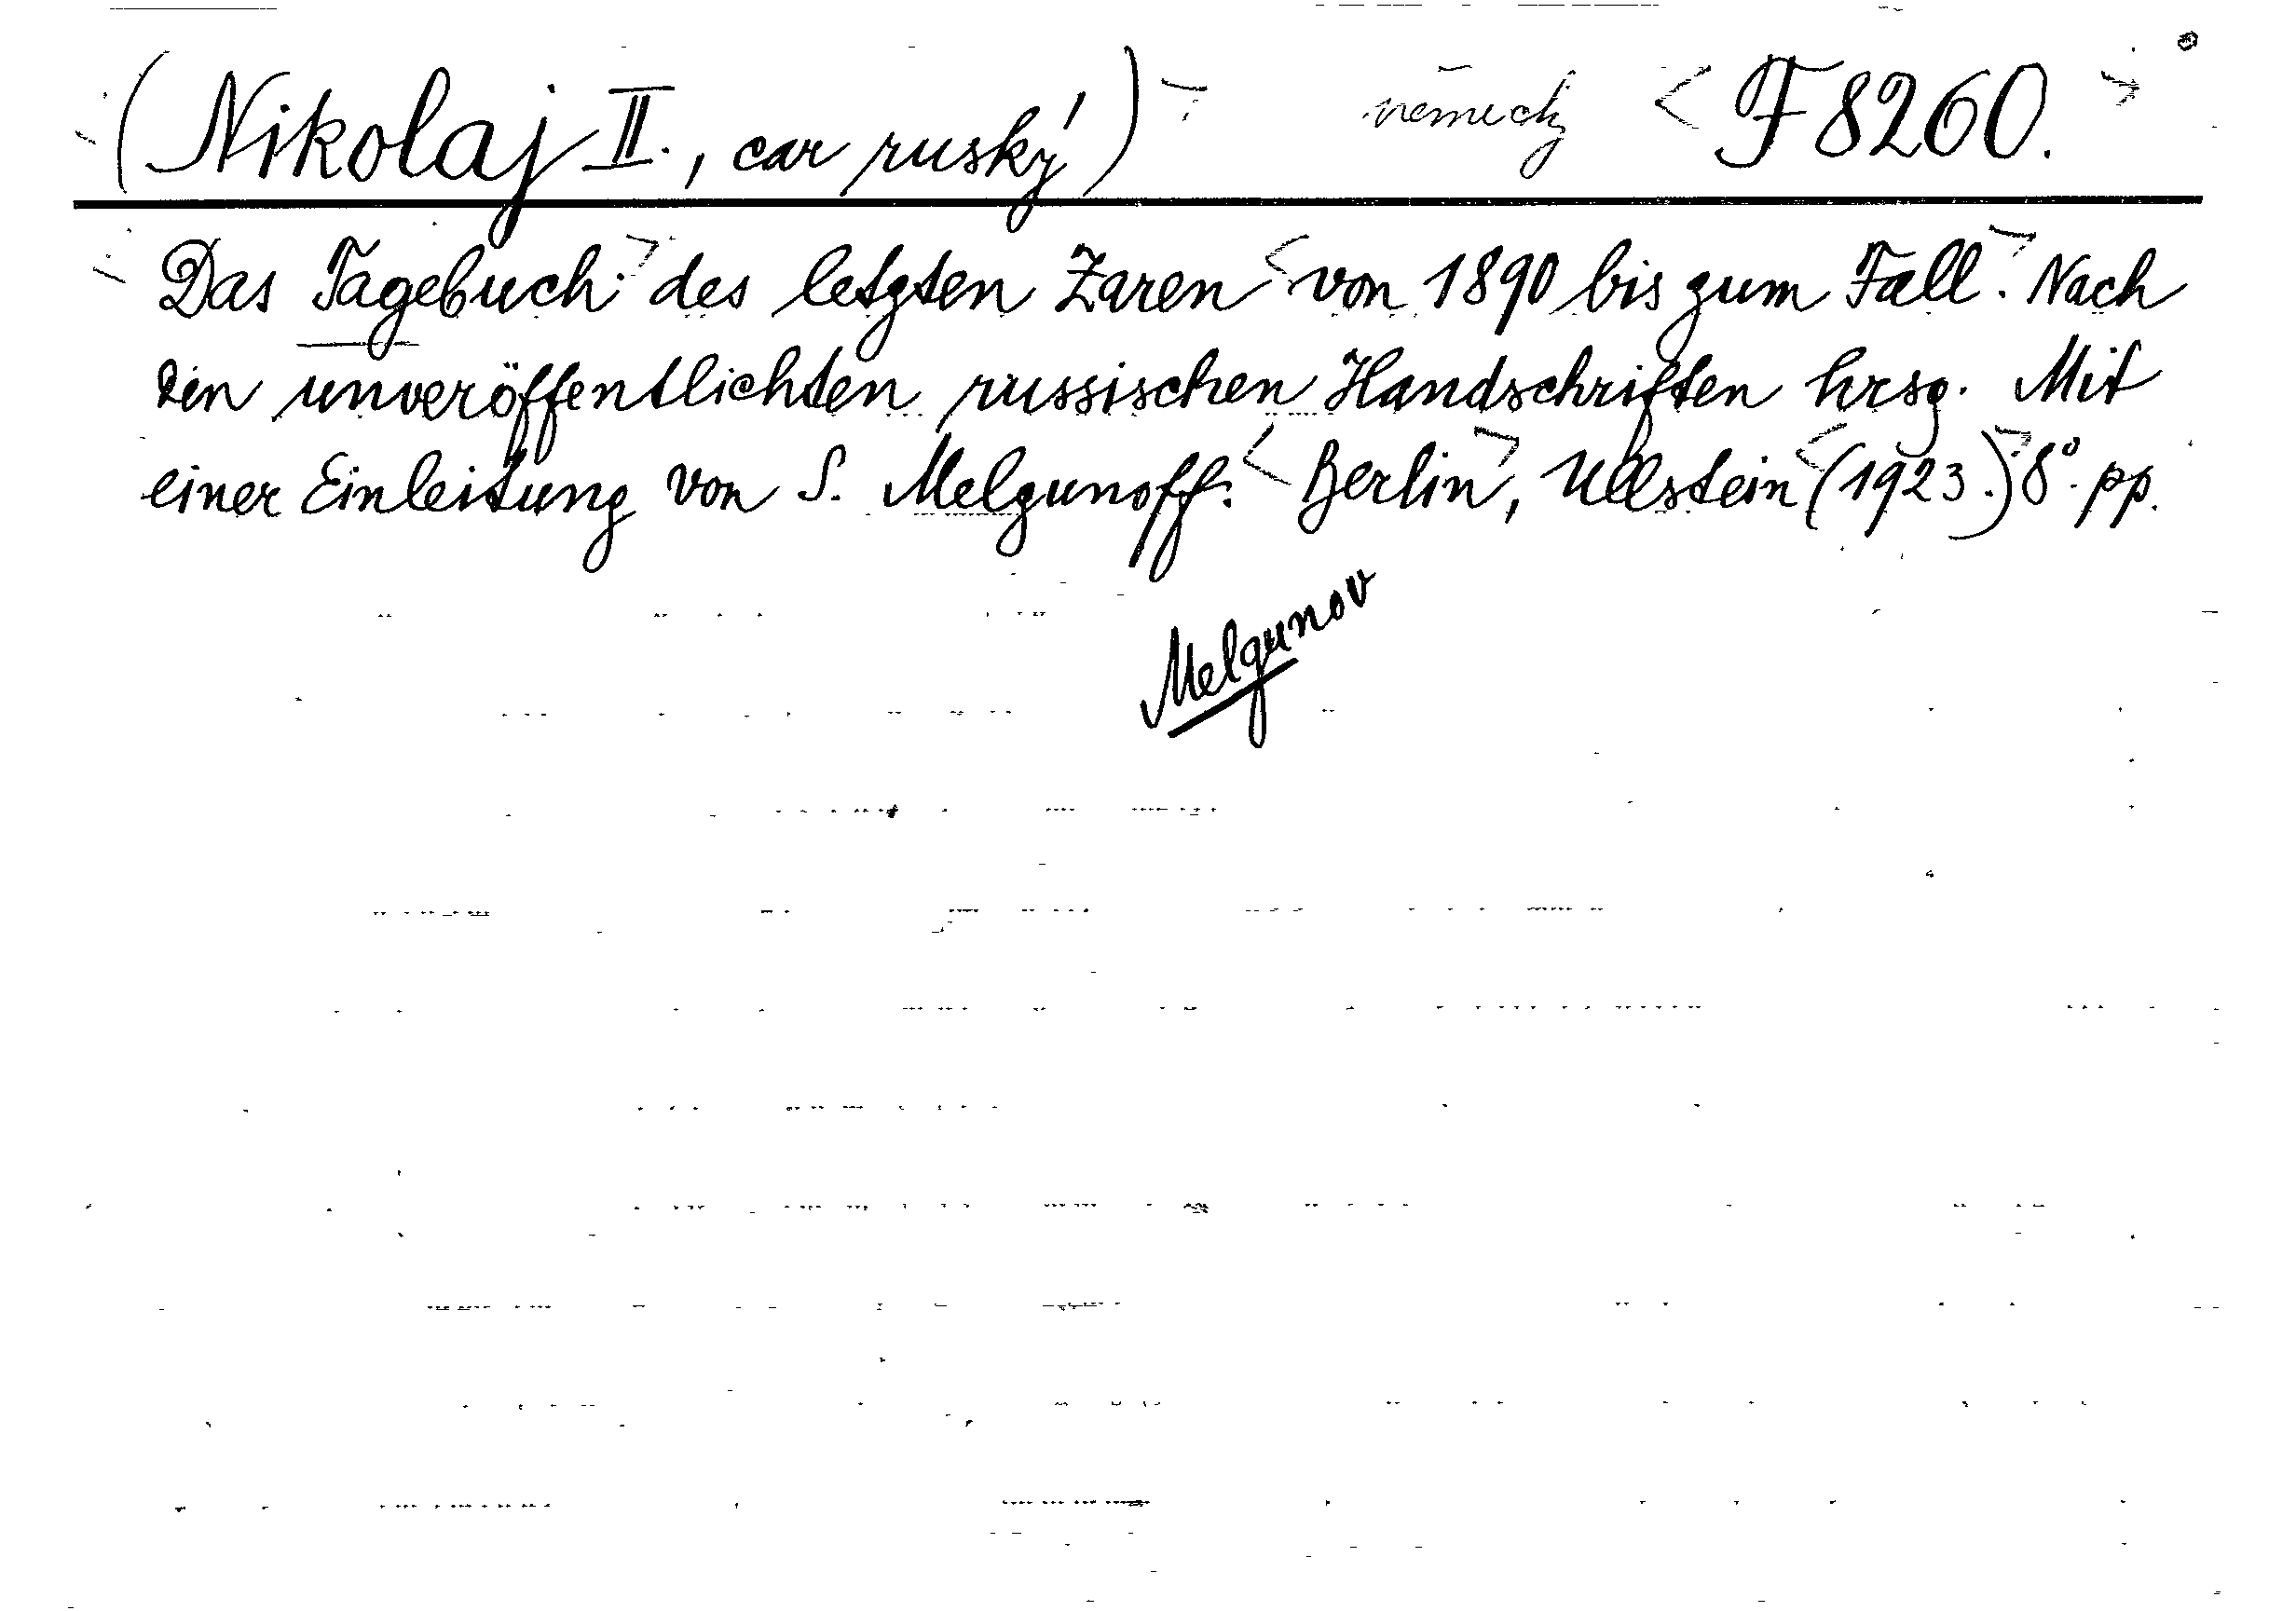 (Nikolaj II., car ruský) německy F 8260.
Das Tagebuch des letzten Zaren von 1890 bis zum Fall. Nach
den unveröffentlichten russischen Handschriften hrsg. Mit
einer Einleitung von S. Melgunoff. Berlin, Ullstein (1923.) 8°. pp.
Melgunov